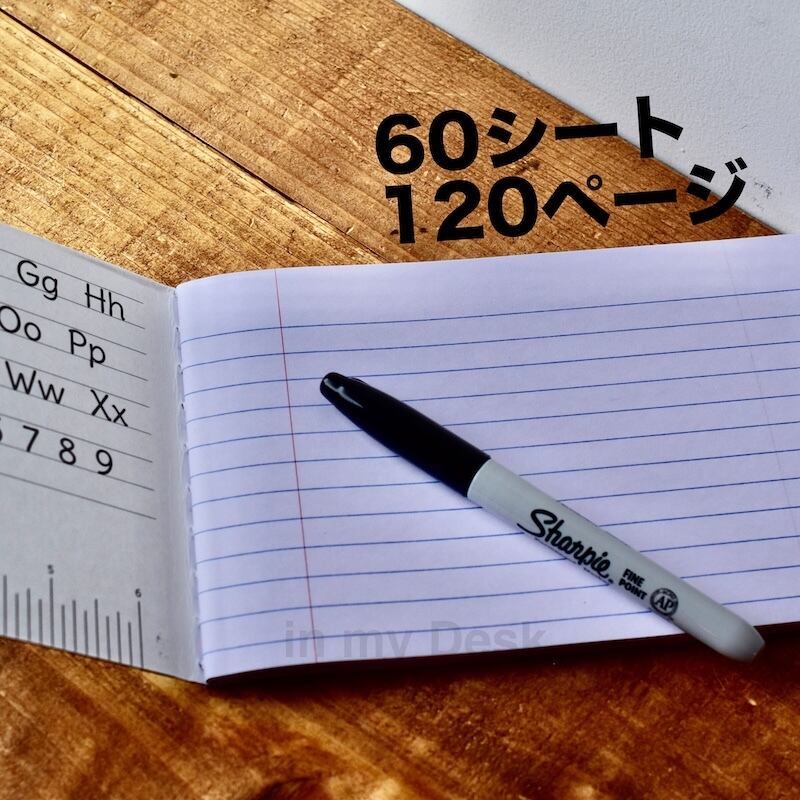 60シート
120ページ
Gg Hh
Oo Pp
Ww Xx
7 8 9
5
6
Sharpie
FINE
POINT
AP
in my Desk